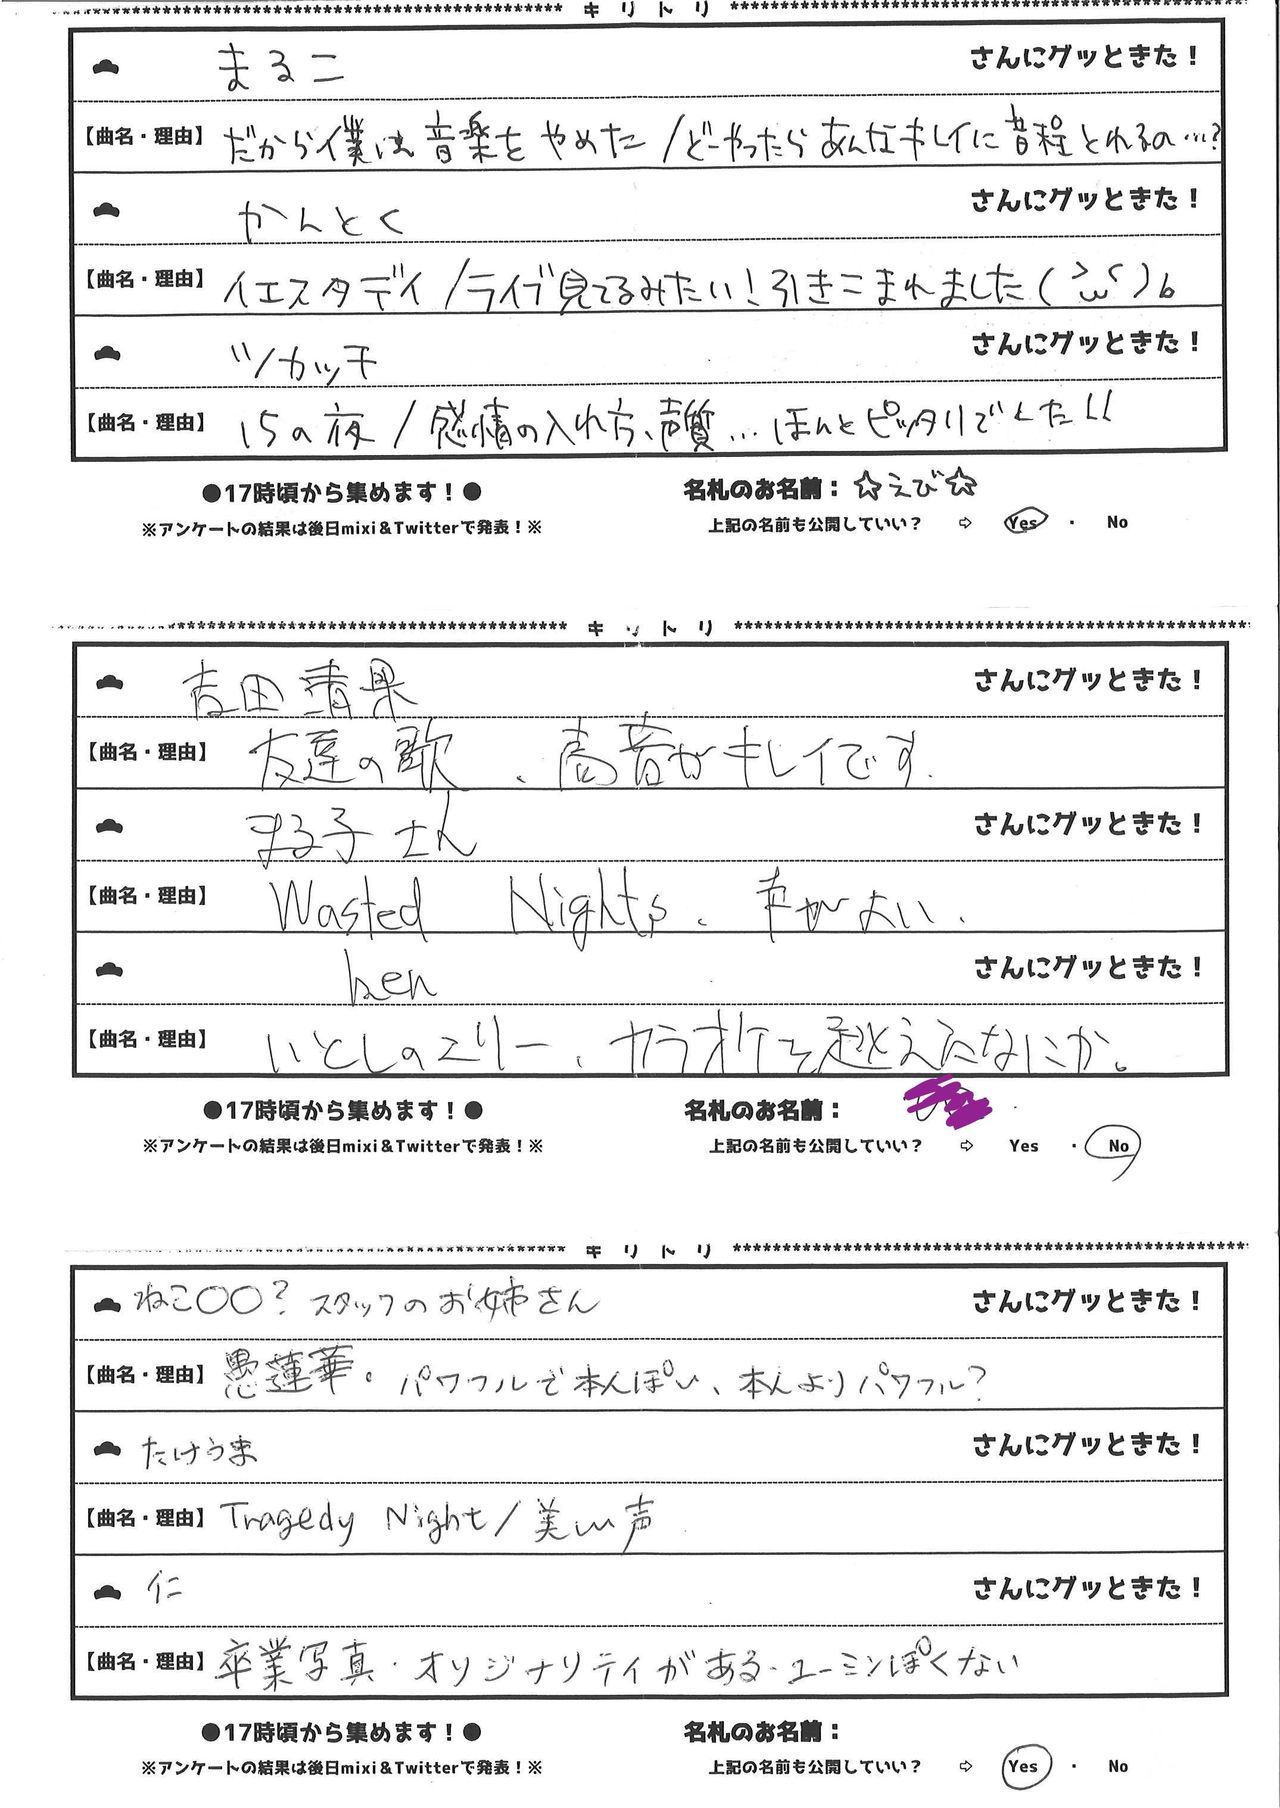 ******************** キリトリ ********************
まるこ さんにグッときた！
【曲名・理由】だから僕は音楽をやめた/どーやったらあんなキレイに音程とれるの…?
かんとく さんにグッときた！
【曲名・理由】イエスタデイ/ライブ見てるみたい！引きこまれました(>ω<)b
ツノカッチ さんにグッときた！
【曲名・理由】15の夜/感情の入れ方、声質…ほんとピッタリでした!!
●17時頃から集めます！● 名札のお名前：☆えび☆
※アンケートの結果は後日mixi＆Twitterで発表！※ 上記の名前も公開していい？ ⇨ Yes ・ No
******************** キリトリ ********************
吉田 青果 さんにグッときた！
【曲名・理由】友達の歌、高音がキレイです.
まる子さん さんにグッときた！
【曲名・理由】Wasted Nights、声がよい.
ken さんにグッときた！
【曲名・理由】いとしのエリー、カラオケを越えたなにか。
●17時頃から集めます！● 名札のお名前：
※アンケートの結果は後日mixi＆Twitterで発表！※ 上記の名前も公開していい？ ⇨ Yes ・ No
******************** キリトリ ********************
ねこ〇〇？スタッフのお姉さん さんにグッときた！
【曲名・理由】愚蓮華。パワフルで本人ぽい、本人よりパワフル？
たけうま さんにグッときた！
【曲名・理由】Tragedy Night/美しい声
仁 さんにグッときた！
【曲名・理由】卒業写真・オリジナリティがある・ユーミンぽくない
●17時頃から集めます！● 名札のお名前：
※アンケートの結果は後日mixi＆Twitterで発表！※ 上記の名前も公開していい？ ⇨ Yes ・ No